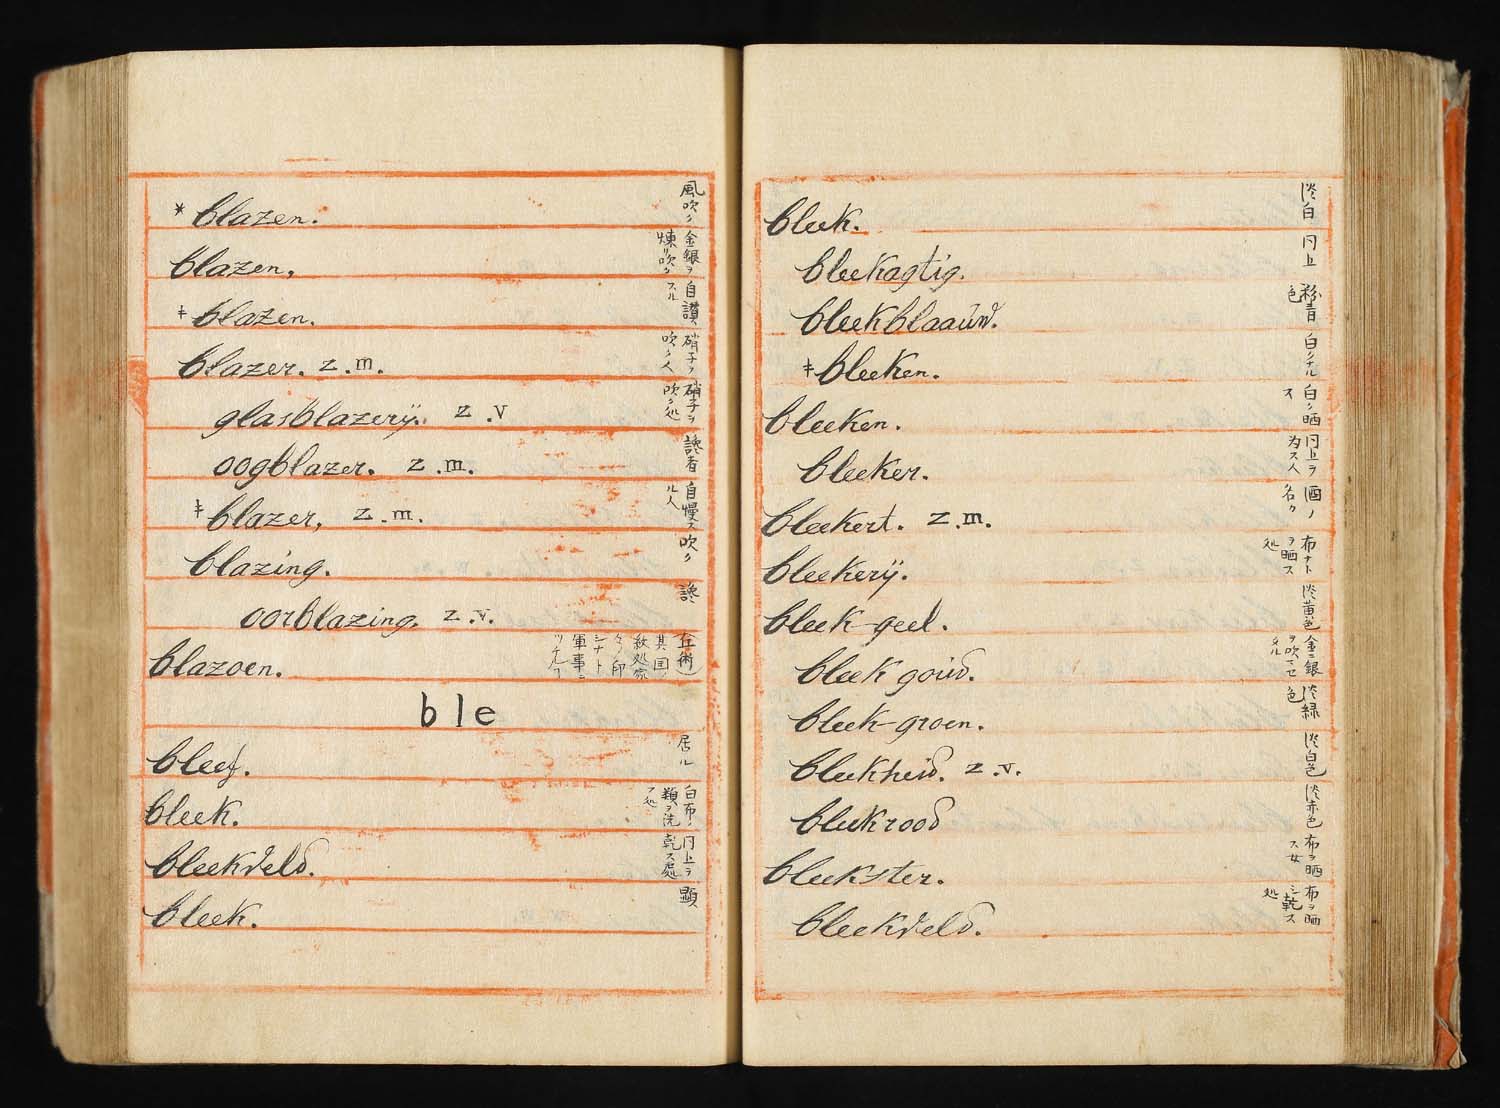 * blazen. 風吹ク
blazen, 金銀ヲ煉吹ク
‡ blazen. 自讃スル
blazer. z.m. 硝子ヲ吹ク人
glasblazerij. z.v 硝子ヲ吹ク処
oogblazer. z.m. 讒者
‡ blazer, z.m. 自慢スル人
blazing. 吹ク
oorblazing. z.v. 讒
blazoen.
ble
bleef. 居ル
bleek. 白布ノ類ヲ洗フ処
bleekveld. 同上ヲ乾ス処
bleek. 顕
bleek. 淡白
bleekagtig. 同上
bleekblaauw. 粉青色
‡ bleeken. 白クナル
bleeken. 白ク晒ス
bleeker. 同上ヲ为ス人
bleekert. z.m. 酒ノ名
bleekerij. 布ナトヲ晒ス処
bleek-geel. 淡黄色
bleek goud.
bleek-groen. 淡緑色
bleekheid. z.v. 淡白色
bleekrood 淡赤色
bleekster. 布ヲ晒ス女
bleekveld. 布ヲ晒シ乾ス処